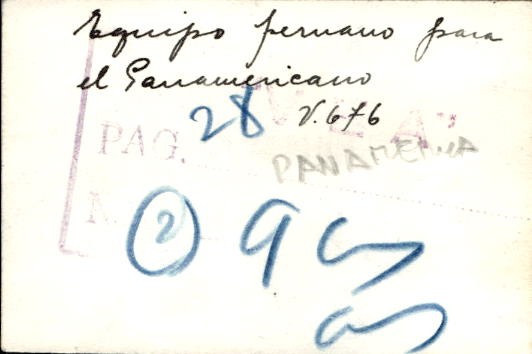 Equipo peruano para
el Panamericano
V.676
28
"VEA"
PAG.
N
PANAMERICA
2
9 cm